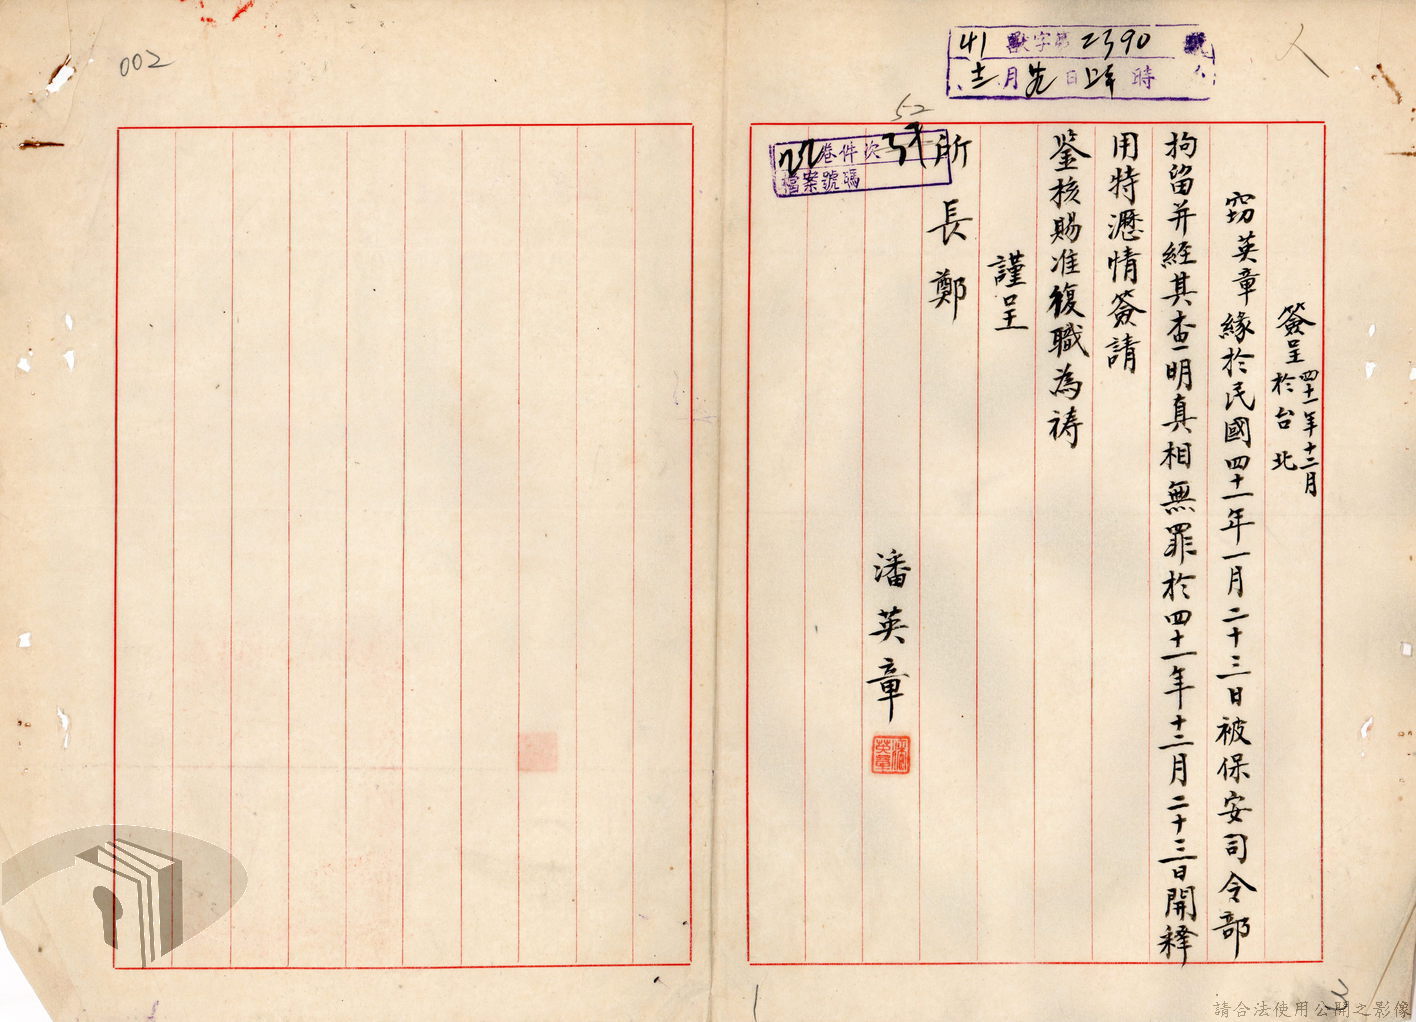 002
41 獸字第2390號
十二月 日 時
人
簽呈 四十一年十二月
於台北
窃英章緣於民國四十一年一月二十三日被保安司令部
拘留并經其查明真相無罪於四十一年十二月二十三日開釋
用特瀝情簽請
鉴核賜准復職為祷
謹呈
所長鄭
52
卷件次
檔案號碼
潘英章
潘英章
請合法使用公開之影像